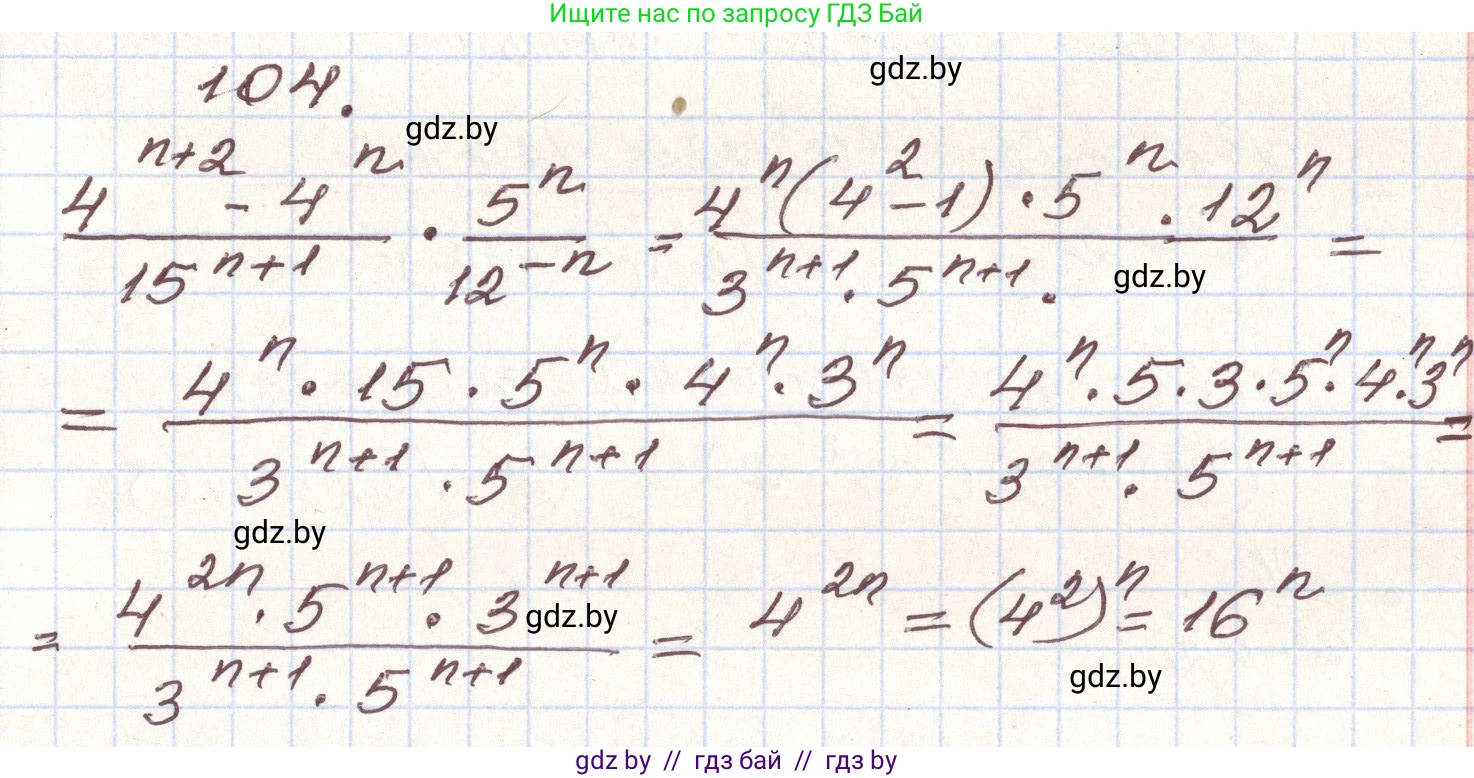 Ищите нас по запросу ГДЗ Бай
104.
gdz.by
gdz.by
(4^(n+2) - 4^n)/15^(n+1) · 5^n/12^(-n) = (4^n(4^2 - 1) · 5^n · 12^n)/(3^(n+1) · 5^(n+1) ·) =
gdz.by
= (4^n · 15 · 5^n · 4^n · 3^n)/(3^(n+1) · 5^(n+1)) = (4^n · 5 · 3 · 5^n · 4^n · 3^n)/(3^(n+1) · 5^(n+1)) =
gdz.by
= (4^(2n) · 5^(n+1) · 3^(n+1))/(3^(n+1) · 5^(n+1)) = 4^(2n) = (4^2)^n = 16^n
gdz.by
gdz.by
gdz by // гдз бай // гдз by